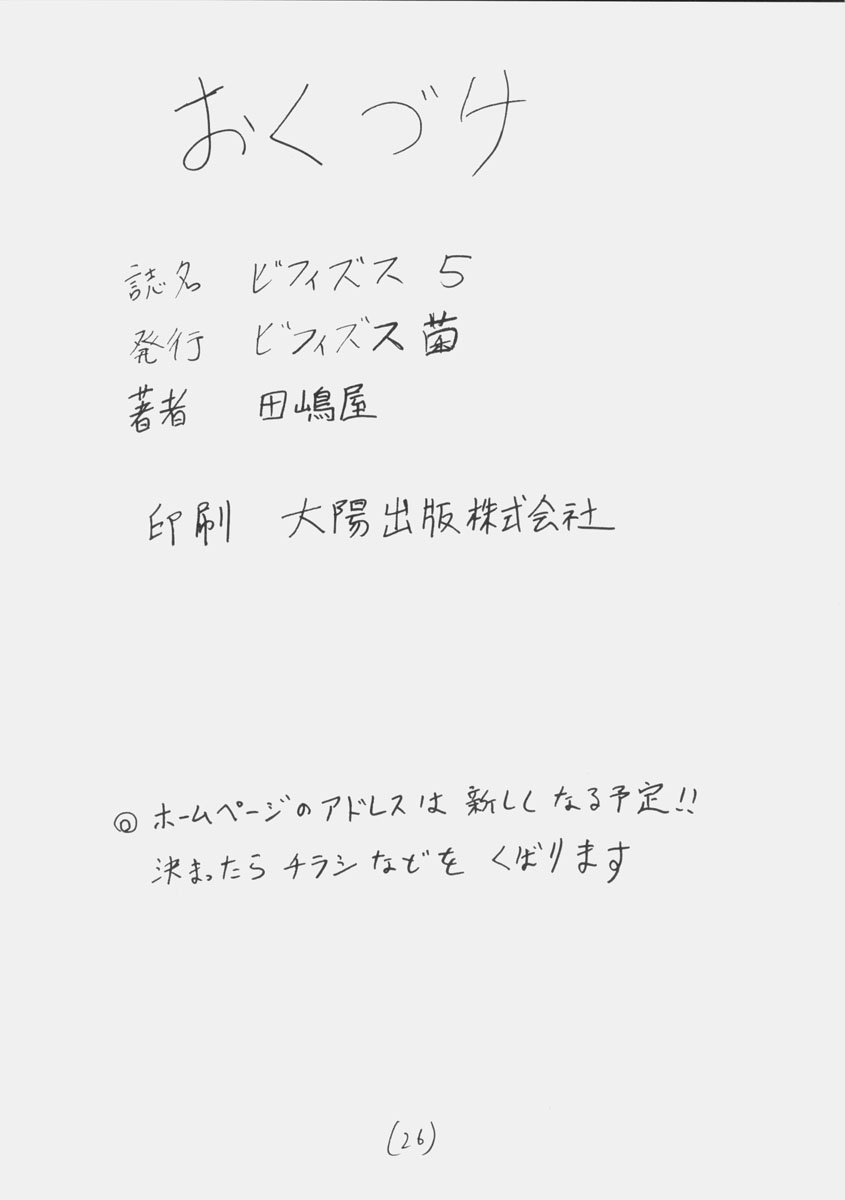 おくづけ
誌名 ビフィズス 5
発行 ビフィズス菌
著者 田嶋屋
印刷 大陽出版株式会社
◎ ホームページのアドレスは 新しくなる予定!!
決まったら チラシなどを くばります
(26)